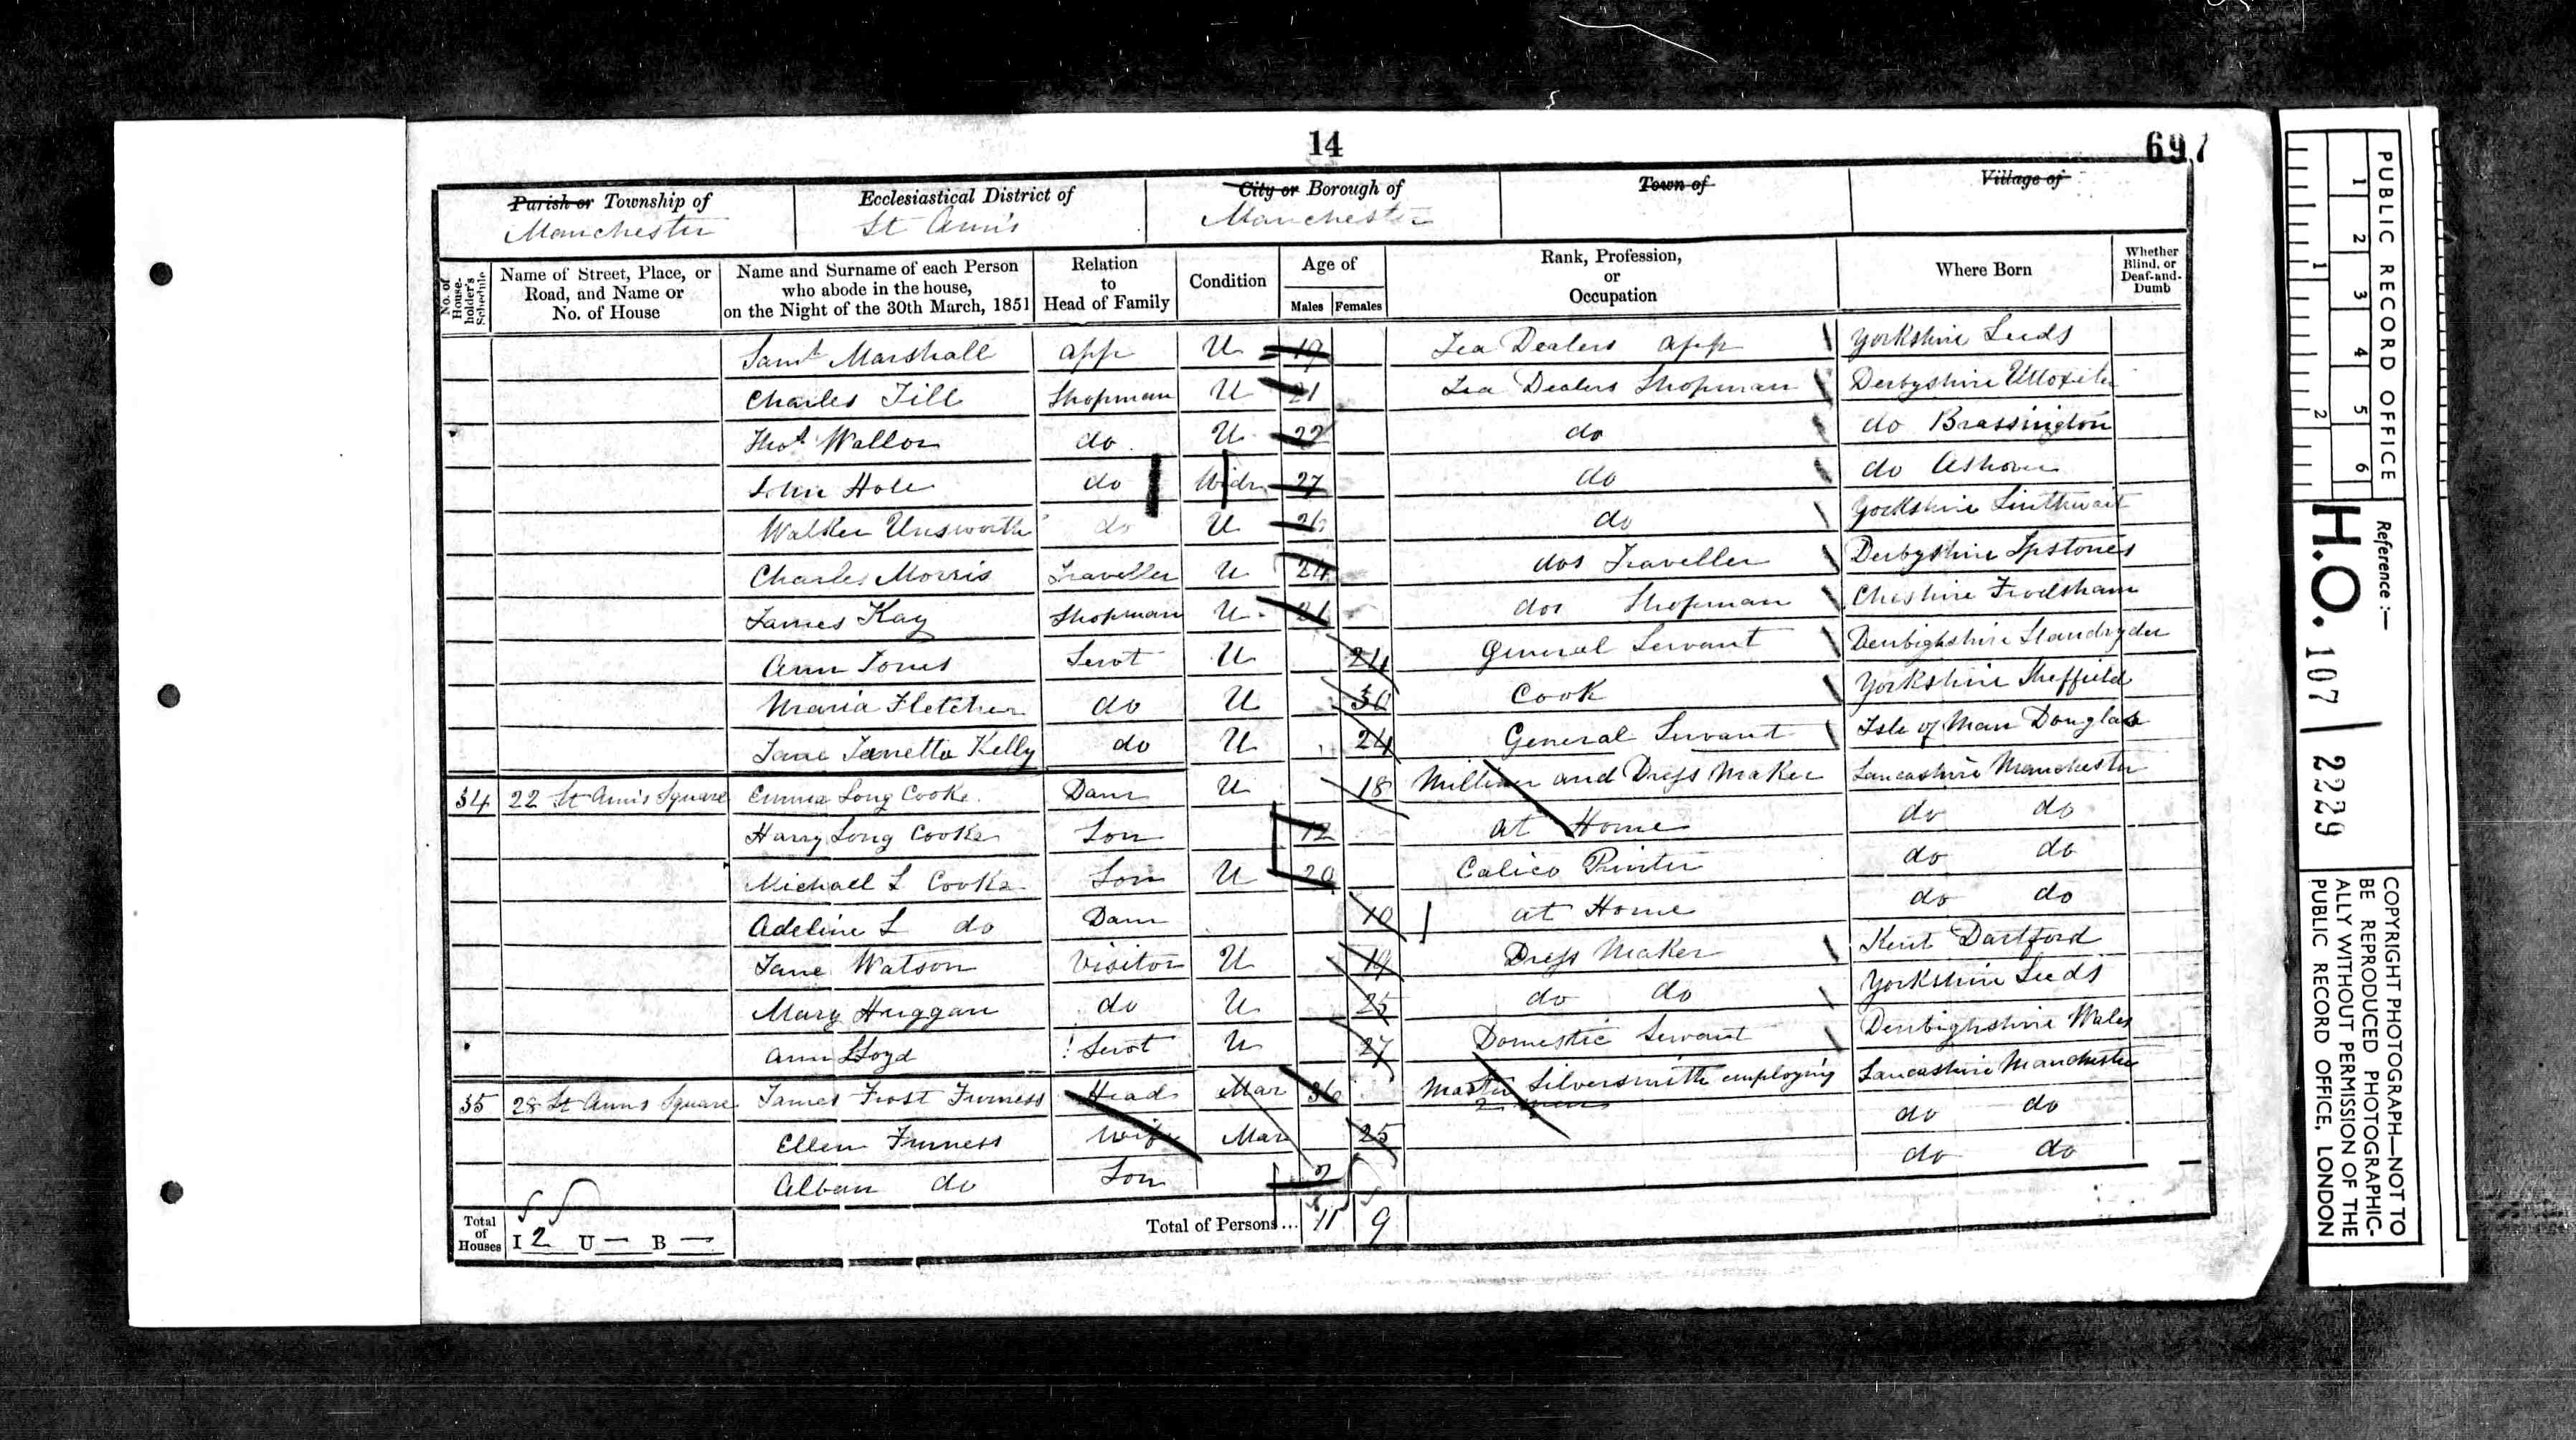 14
697
Parish or Township of
Manchester
Ecclesiastical District of
St Ann's
City or Borough of
Manchester
Town of
Village of
No. of House-holder's Schedule
Name of Street, Place, or Road, and Name or No. of House
Name and Surname of each Person who abode in the house, on the Night of the 30th March, 1851
Relation to Head of Family
Condition
Age of
Males Females
Rank, Profession, or Occupation
Where Born
Whether Blind, or Deaf-and-Dumb
Saml Marshall app U 19 Tea Dealers app Yorkshire Leeds
Charles Till Shopman U 21 Tea Dealers Shopman Derbyshire Uttoxeter
Thos Wallor do U 22 do do Brassington
John Hole do Widr 27 do do Ashover
Walker Unsworth do U do Yorkshire Linthwait
Charles Morris Traveller U 24 dos Traveller Derbyshire Ipstones
James Kay Shopman U 21 dos Shopman Cheshire Frodsham
Ann Jones Servt U 24 General Servant Denbighshire
Maria Fletcher do U 30 Cook Yorkshire Sheffield
Jane Janetta Kelly do U 24 General Servant Isle of Man Douglas
34 22 St Ann's Square Emma Long Cooke Daur U 18 Milliner and Dress Maker Lancashire Manchester
Harry Long Cooke Son 12 at Home do do
Michael L Cooke Son U 20 Calico Printer do do
Adeline L do Daur 10 at Home do do
Jane Watson Visitor U 19 Dress Maker Kent Dartford
Mary Huggan do U 25 do do Yorkshire Leeds
Ann Lloyd Servt U 27 Domestic Servant Denbighshire Wales
35 28 St Anns Square James Frost Furness Head Mar 36 Master Silversmith employing 2 men Lancashire Manchester
Ellen Furness Wife Mar 25 do do
Alban do Son 2 do do
Total of Houses I 2 U — B —
Total of Persons... 11 9
PUBLIC RECORD OFFICE
1 2 3 4 5 6
1 2
Reference :—
H.O. 107 / 2229
COPYRIGHT PHOTOGRAPH—NOT TO
BE REPRODUCED PHOTOGRAPHIC-
ALLY WITHOUT PERMISSION OF THE
PUBLIC RECORD OFFICE, LONDON